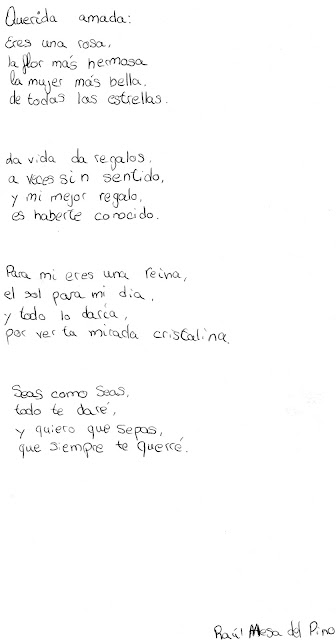 Querida amada:
Eres una rosa,
la flor más hermosa
la mujer más bella,
de todas las estrellas.
La vida da regalos,
a veces sin sentido,
y mi mejor regalo,
es haberte conocido.
Para mi eres una reina,
el sol para mi dia,
y todo lo daría,
por ver tu mirada cristalina.
Seas como seas,
todo te daré,
y quiero que sepas,
que siempre te querré.
Raúl Mesa del Pino